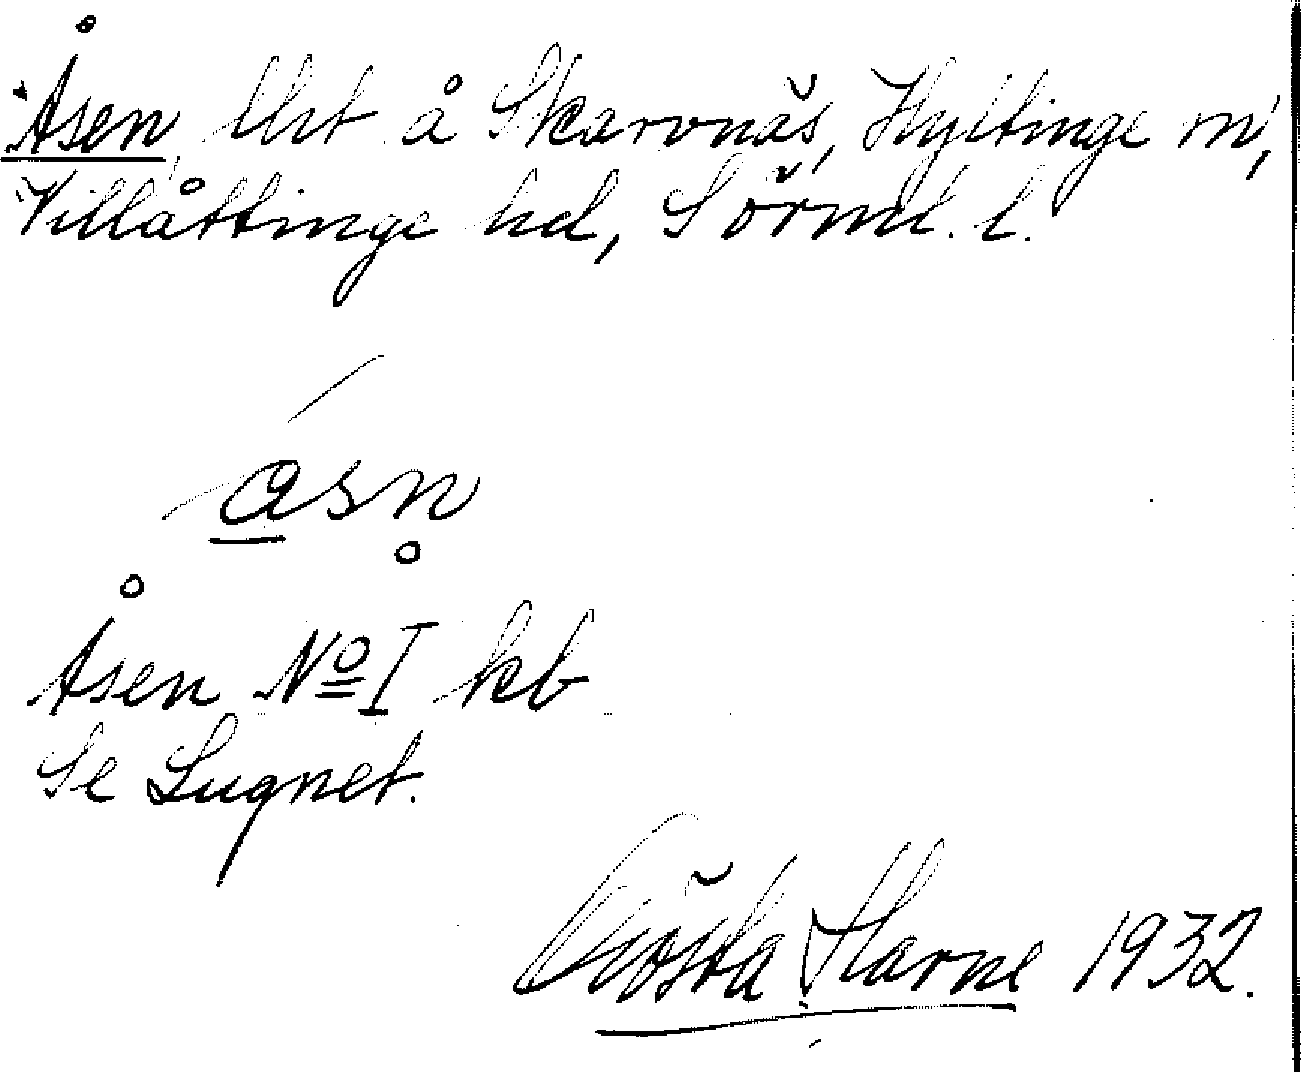 Åsen, tht å Skarvnäs, Hyltinge sn,
Villåttinge hd, Sörml. l.
åsn̥
Åsen No I kb
Se Lugnet.
Gösta Harne 1932.